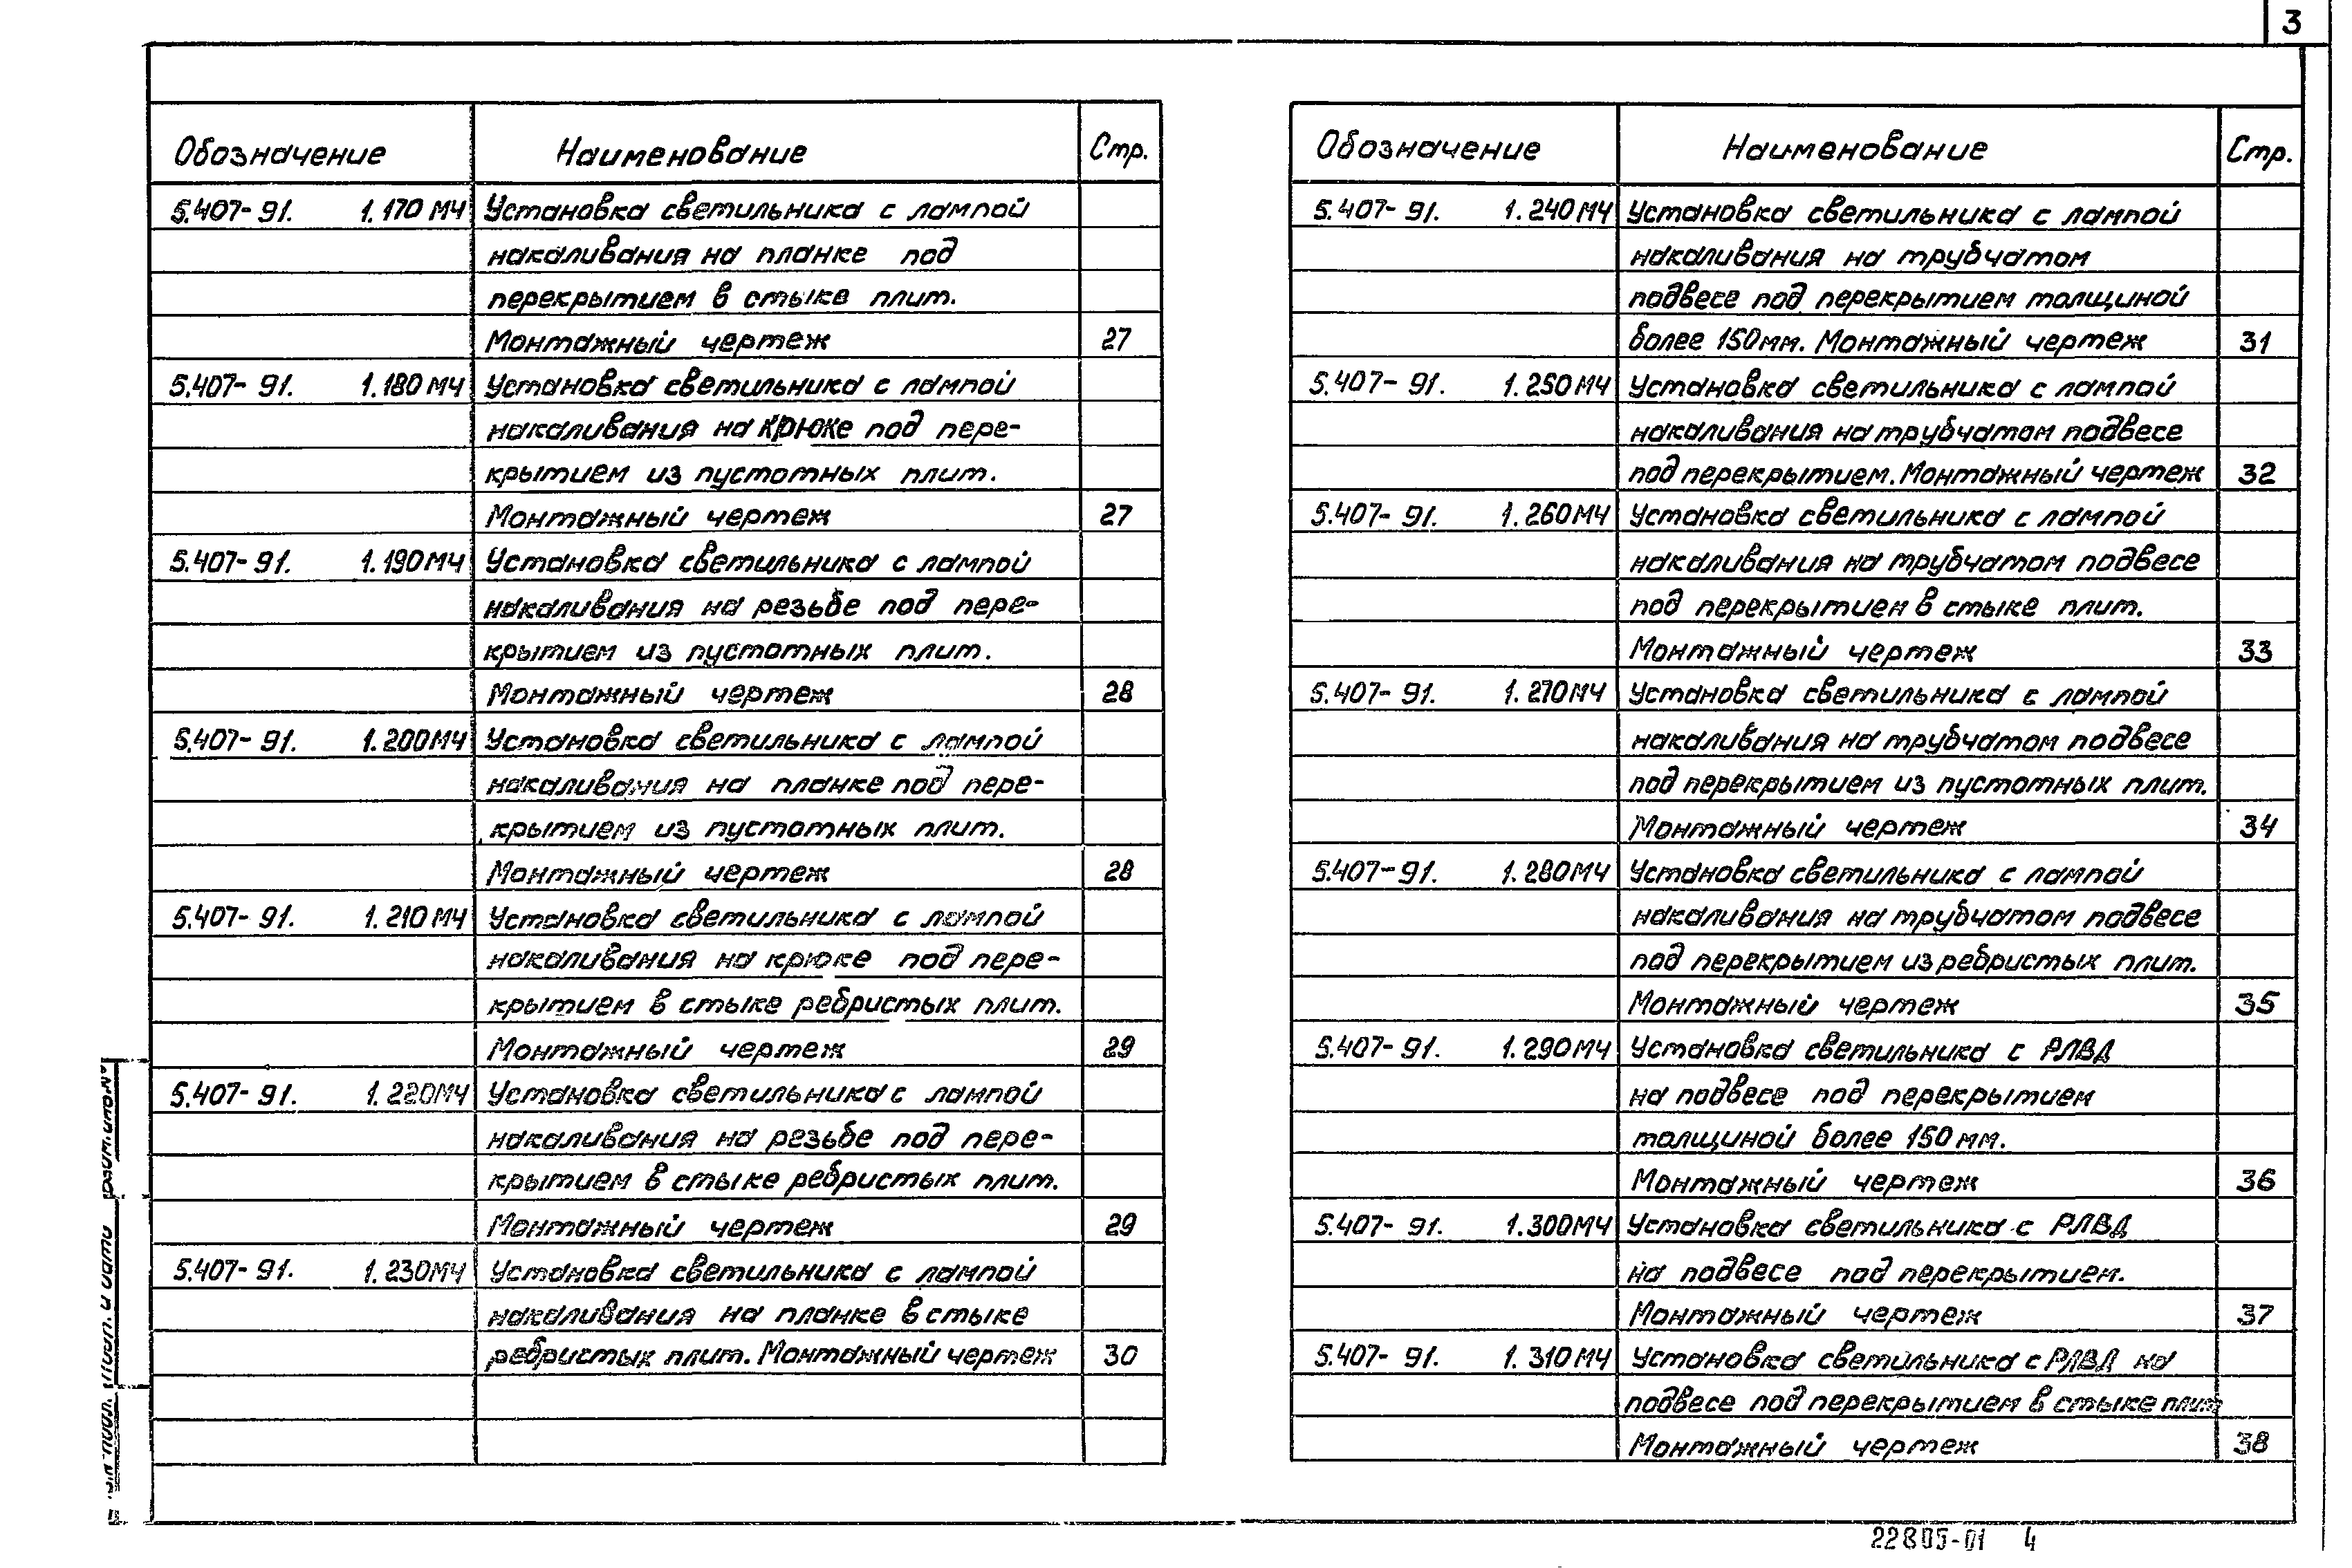 3
Обозначение Наименование Стр.
5.407-91. 1.170МЧ Установка светильника с лампой
накаливания на планке под
перекрытием в стыке плит.
Монтажный чертеж 27
5.407-91. 1.180МЧ Установка светильника с лампой
накаливания на крюке под пере-
крытием из пустотных плит.
Монтажный чертеж 27
5.407-91. 1.190МЧ Установка светильника с лампой
накаливания на резьбе под пере-
крытием из пустотных плит.
Монтажный чертеж 28
5.407-91. 1.200МЧ Установка светильника с лампой
накаливания на планке под пере-
крытием из пустотных плит.
Монтажный чертеж 28
5.407-91. 1.210МЧ Установка светильника с лампой
накаливания на крюке под пере-
крытием в стыке ребристых плит.
Монтажный чертеж 29
5.407-91. 1.220МЧ Установка светильника с лампой
накаливания на резьбе под пере-
крытием в стыке ребристых плит.
Монтажный чертеж 29
5.407-91. 1.230МЧ Установка светильника с лампой
накаливания на планке в стыке
ребристых плит. Монтажный чертеж 30
Обозначение Наименование Стр.
5.407-91. 1.240МЧ Установка светильника с лампой
накаливания на трубчатом
подвесе под перекрытием толщиной
более 150мм. Монтажный чертеж 31
5.407-91. 1.250МЧ Установка светильника с лампой
накаливания на трубчатом подвесе
под перекрытием. Монтажный чертеж 32
5.407-91. 1.260МЧ Установка светильника с лампой
накаливания на трубчатом подвесе
под перекрытием в стыке плит.
Монтажный чертеж 33
5.407-91. 1.270МЧ Установка светильника с лампой
накаливания на трубчатом подвесе
под перекрытием из пустотных плит.
Монтажный чертеж 34
5.407-91. 1.280МЧ Установка светильника с лампой
накаливания на трубчатом подвесе
под перекрытием из ребристых плит.
Монтажный чертеж 35
5.407-91. 1.290МЧ Установка светильника с РЛВД
на подвесе под перекрытием
толщиной более 150мм.
Монтажный чертеж 36
5.407-91. 1.300МЧ Установка светильника с РЛВД
на подвесе под перекрытием.
Монтажный чертеж 37
5.407-91. 1.310МЧ Установка светильника с РЛВД на
подвесе под перекрытием в стыке плит
Монтажный чертеж 38
22805-01 4